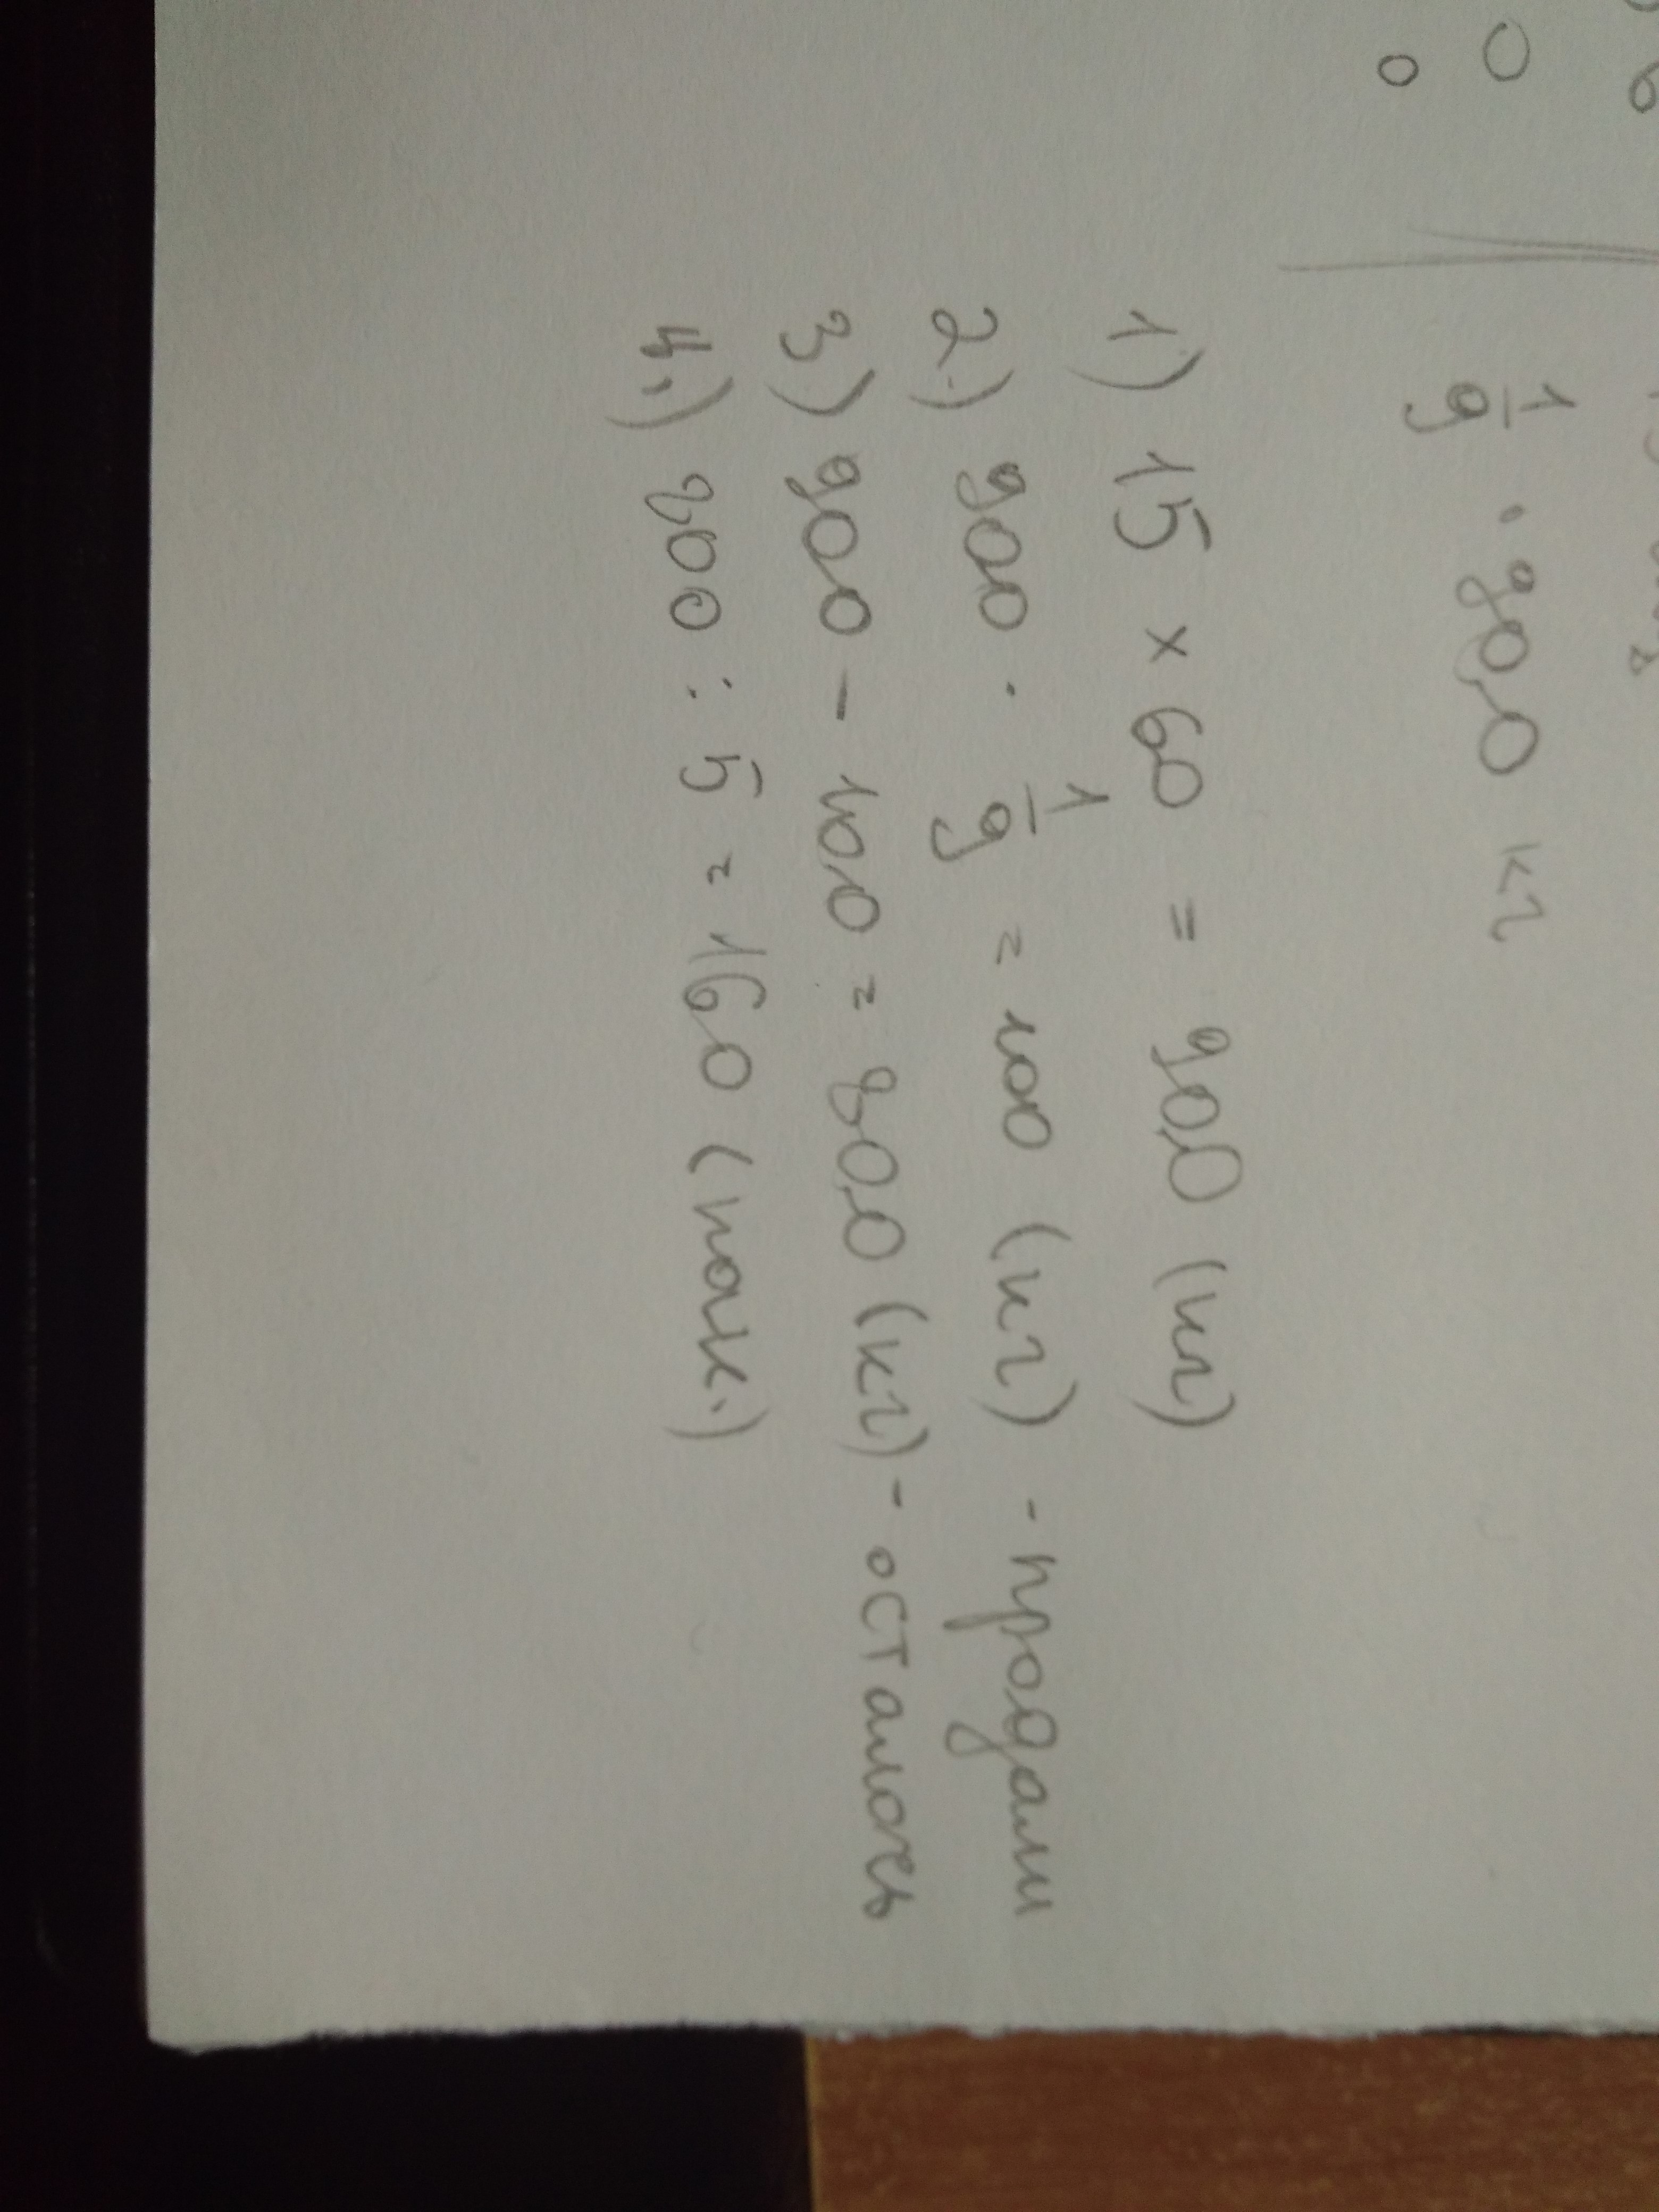 1/9 · 900 кг
1) 15 × 60 = 900 (кг)
2.) 900 · 1/9 = 100 (кг) - продали
3) 900 - 100 = 800 (кг) - осталось
4.) 800 : 5 = 160 (пак.)